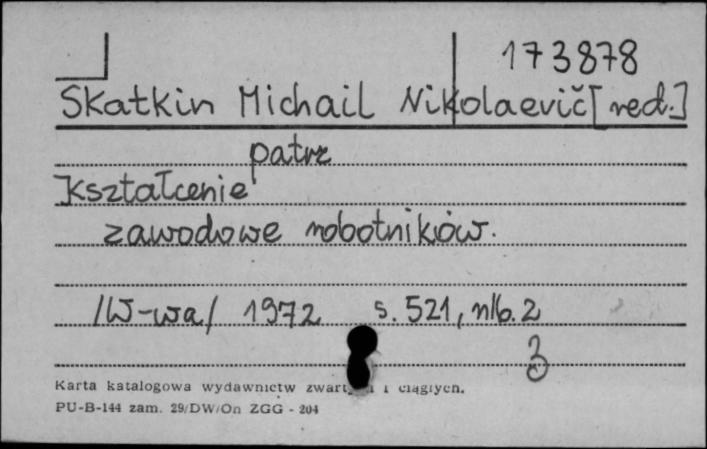 173878
Skatkin Michail Nikolaevič [red.]
patrz
Kształcenie
zawodowe robotników.
/W-wa/ 1972 s. 521, nlb. 2
3
Karta katalogowa wydawnictw i ciągłych.
PU-B-144 zam. 29/DW/On ZGG - 204